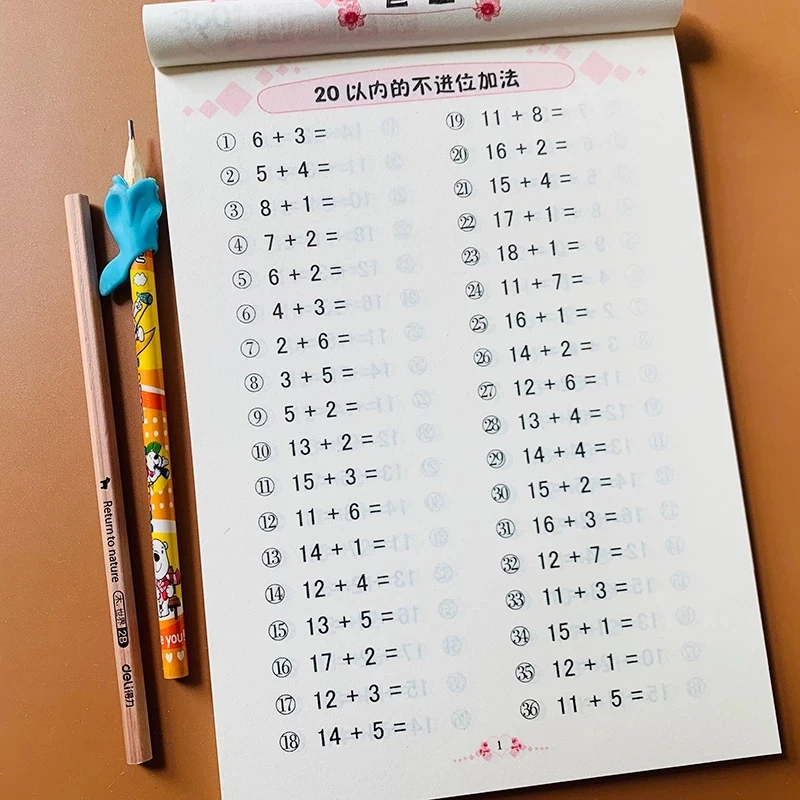 20 以内的不进位加法
① 6 + 3 =
② 5 + 4 =
③ 8 + 1 =
④ 7 + 2 =
⑤ 6 + 2 =
⑥ 4 + 3 =
⑦ 2 + 6 =
⑧ 3 + 5 =
⑨ 5 + 2 =
⑩ 13 + 2 =
⑪ 15 + 3 =
⑫ 11 + 6 =
⑬ 14 + 1 =
⑭ 12 + 4 =
⑮ 13 + 5 =
⑯ 17 + 2 =
⑰ 12 + 3 =
⑱ 14 + 5 =
⑲ 11 + 8 =
⑳ 16 + 2 =
㉑ 15 + 4 =
㉒ 17 + 1 =
㉓ 18 + 1 =
㉔ 11 + 7 =
㉕ 16 + 1 =
㉖ 14 + 2 =
㉗ 12 + 6 =
㉘ 13 + 4 =
㉙ 14 + 4 =
㉚ 15 + 2 =
㉛ 16 + 3 =
㉜ 12 + 7 =
㉝ 11 + 3 =
㉞ 15 + 1 =
㉟ 12 + 1 =
㊱ 11 + 5 =
1
Return to nature 木.世界 2B deli得力
you!